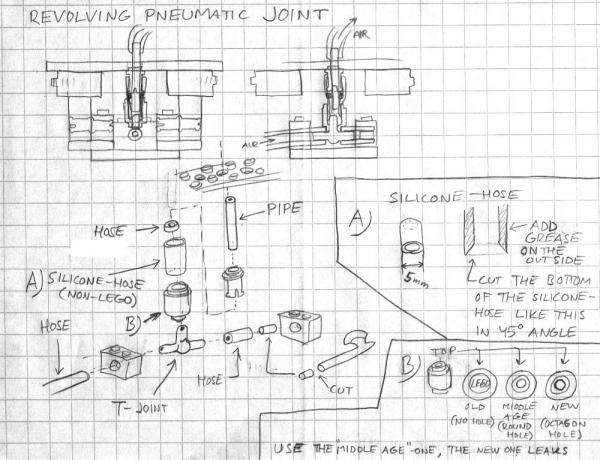 REVOLVING PNEUMATIC JOINT
AIR
AIR
PIPE
HOSE
A) SILICONE-HOSE
(NON-LEGO)
B)
HOSE
T-JOINT
HOSE
CUT
SILICONE-HOSE
A)
5mm
ADD
GREASE
ON THE
OUTSIDE
CUT THE BOTTOM
OF THE SILICONE-
HOSE LIKE THIS
IN 45° ANGLE
B)
TOP
LEGO
OLD
(NO HOLE)
MIDDLE
AGE
(ROUND
HOLE)
NEW
(OCTAGON
HOLE)
USE THE "MIDDLE AGE"-ONE, THE NEW ONE LEAKS